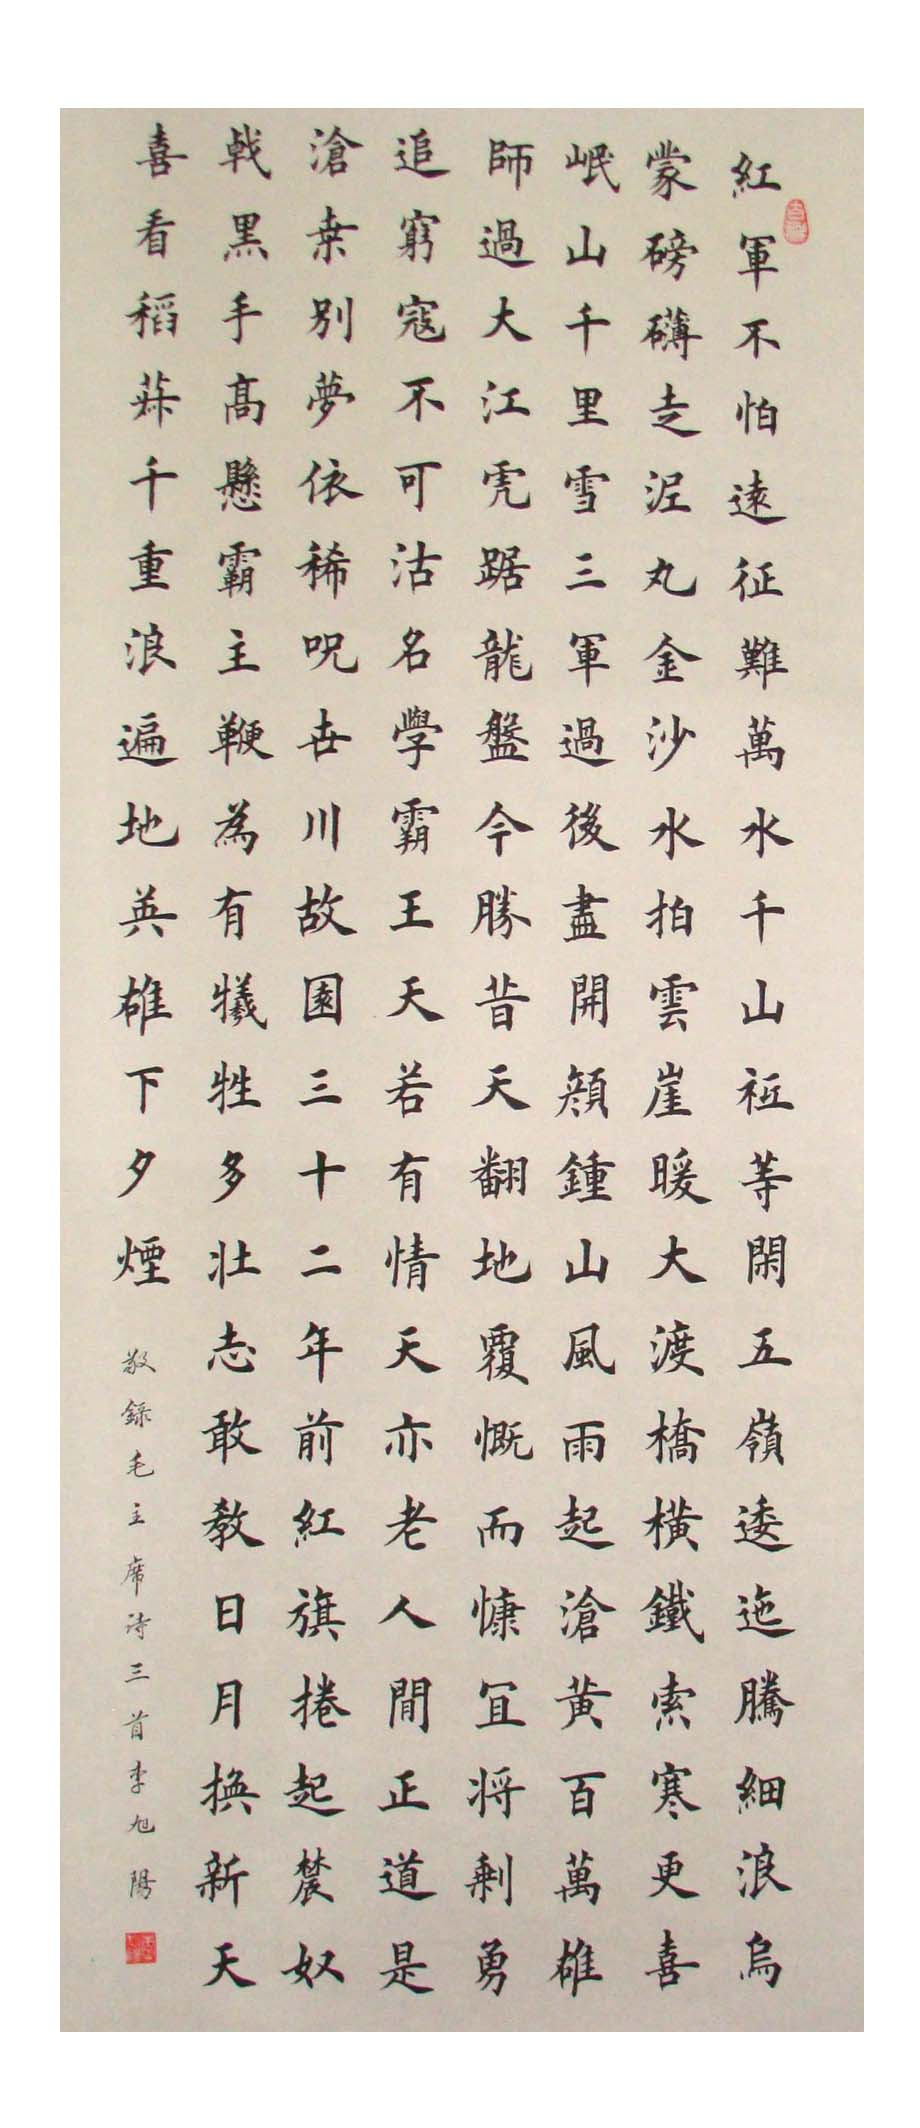 紅軍不怕遠征難萬水千山祗等閑五嶺逶迤騰細浪烏
蒙磅礴走泥丸金沙水拍雲崖暖大渡橋橫鐵索寒更喜
岷山千里雪三軍過後盡開顏鍾山風雨起滄黃百萬雄
師過大江虎踞龍盤今勝昔天翻地覆慨而慷宜將剩勇
追窮寇不可沽名學霸王天若有情天亦老人間正道是
滄桑別夢依稀呪世川故園三十二年前紅旗捲起農奴
戟黑手高懸霸主鞭為有犧牲多壯志敢教日月換新天
喜看稻菽千重浪遍地英雄下夕煙
敬錄毛主席詩三首李旭陽